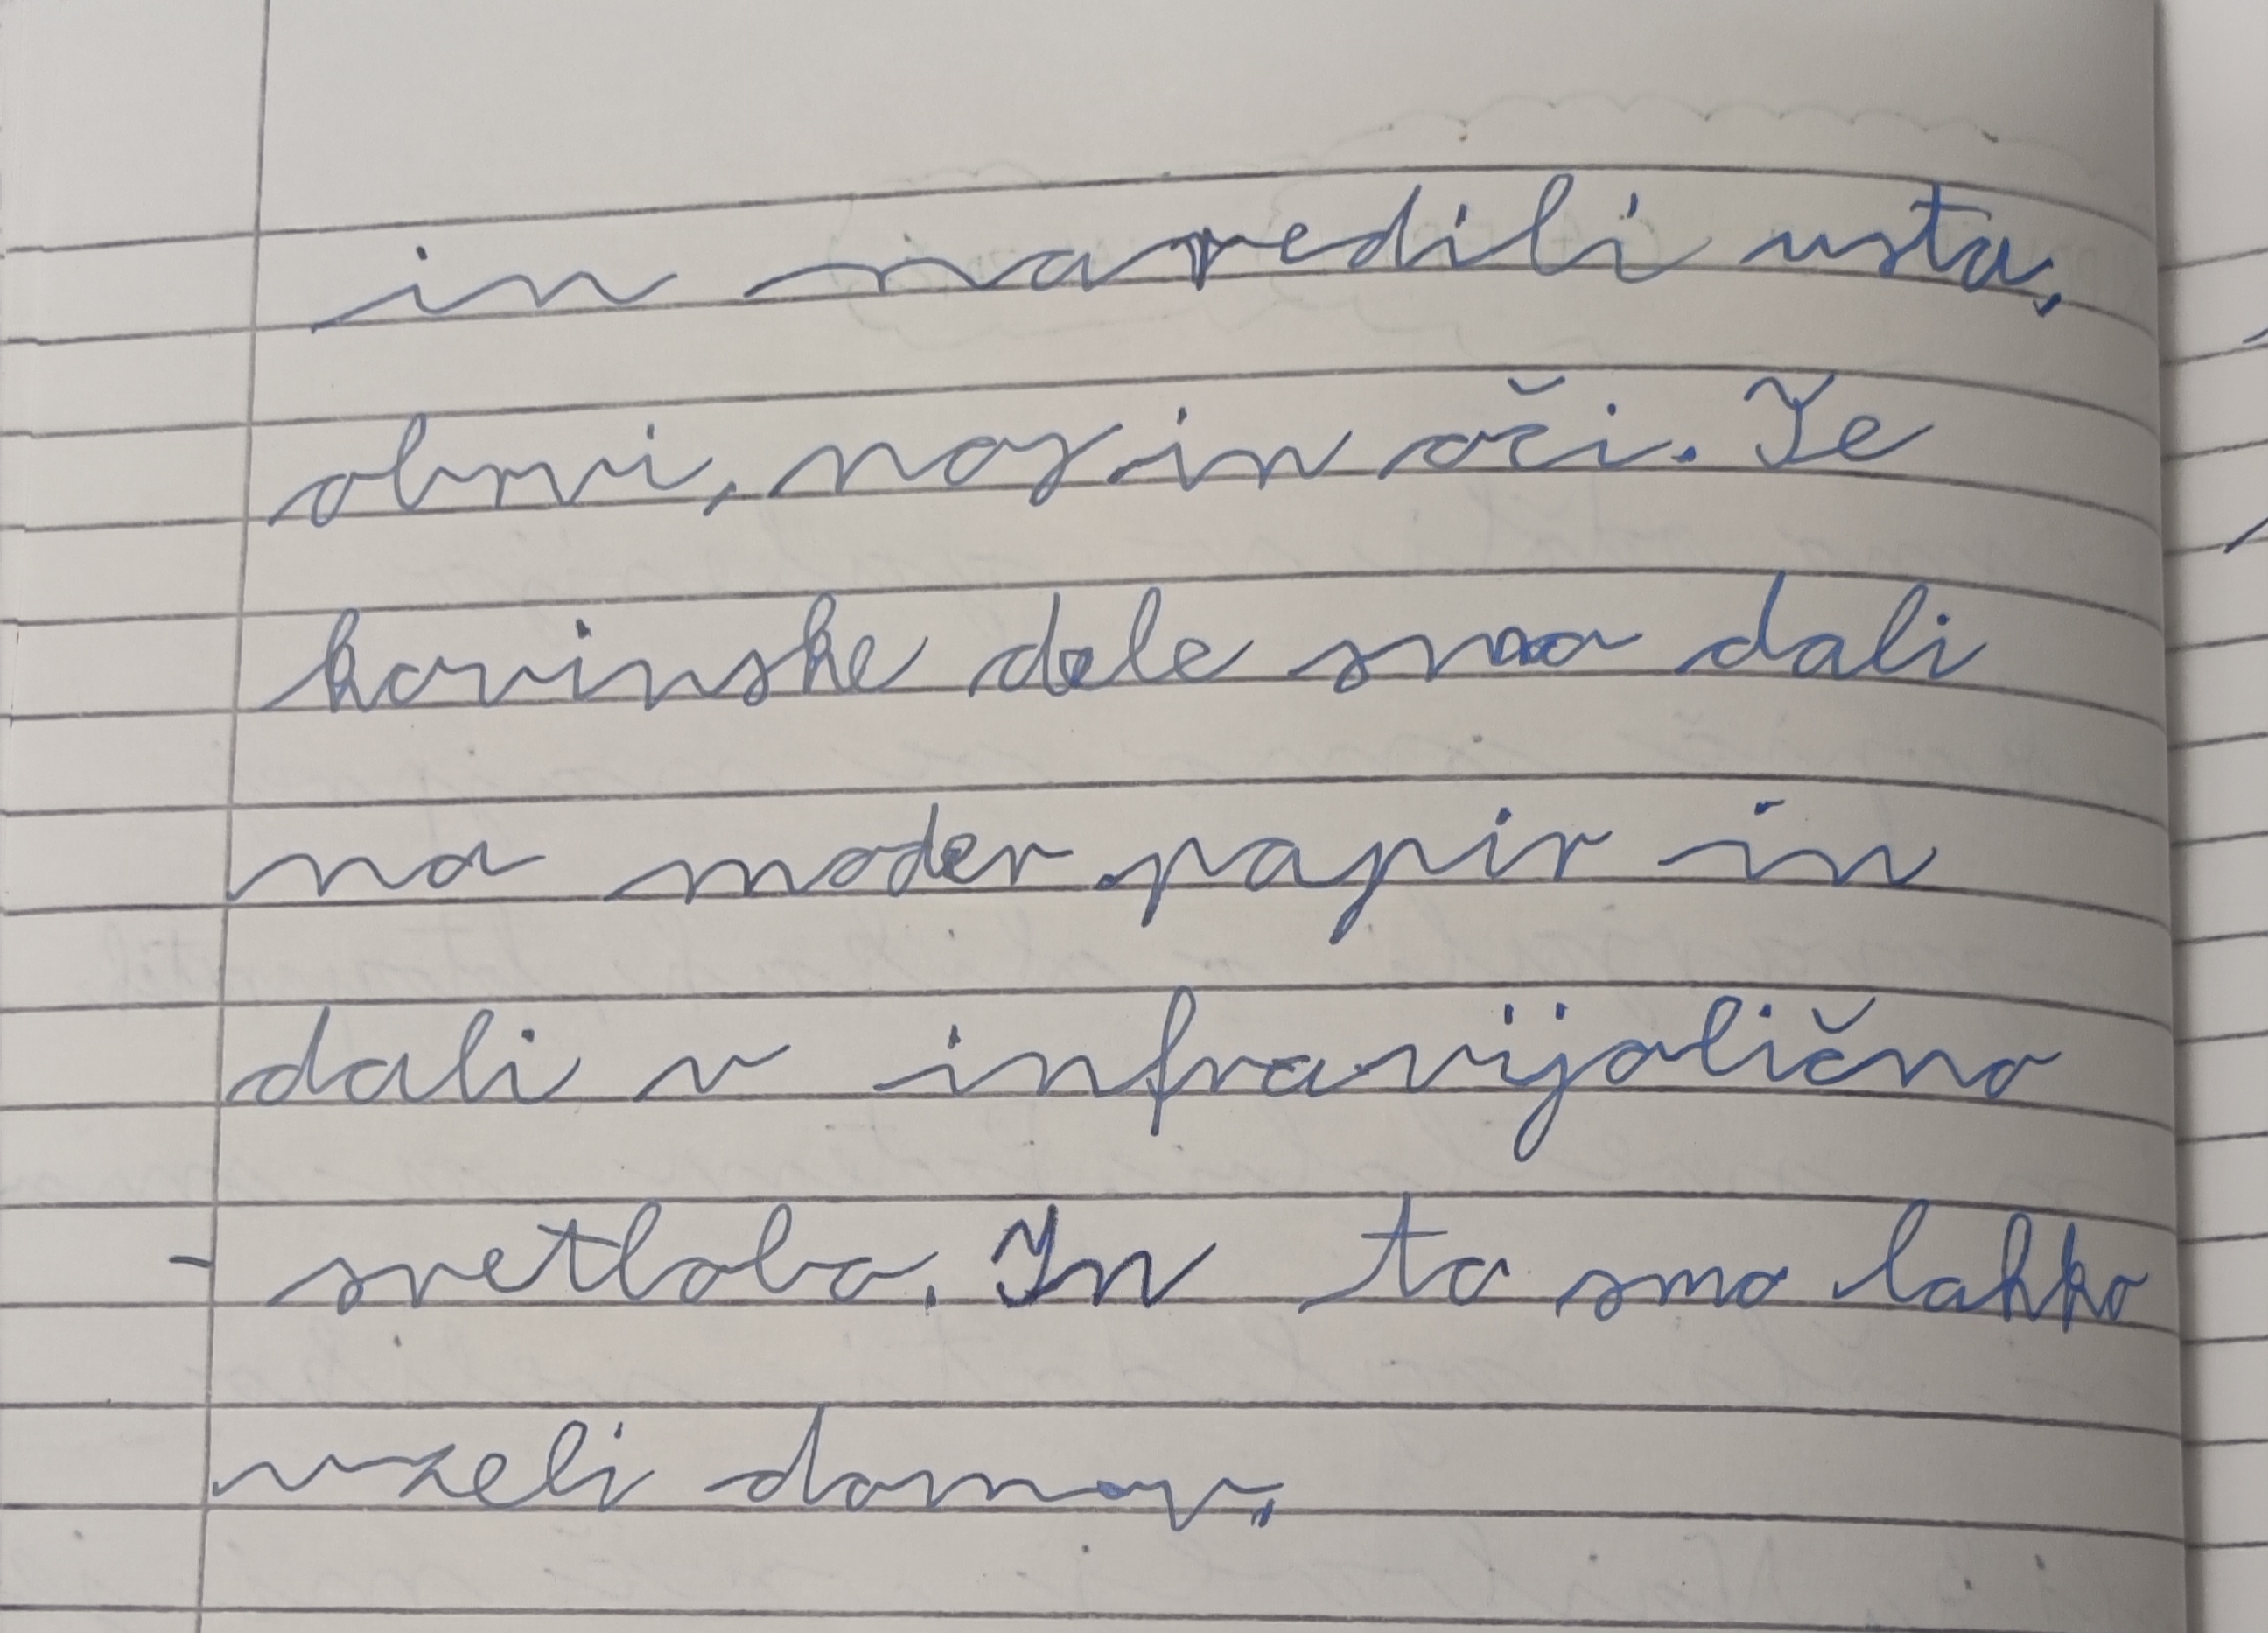 in naredili usta,
obrvi, nos in oči. Te
kovinske dele smo dali
na moder papir in
dali v infravijolično
svetlobo. In to smo lahko
vzeli domov.